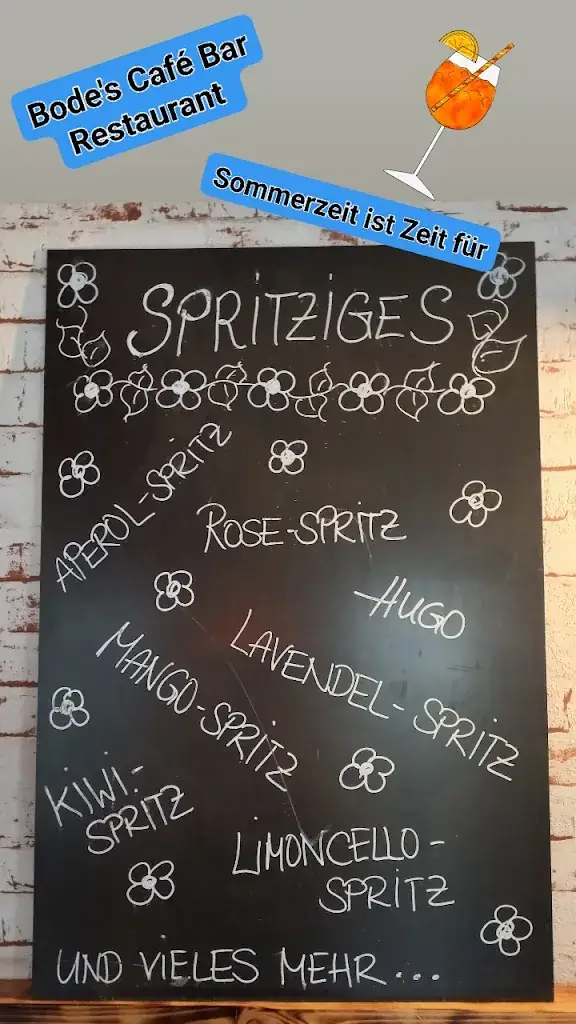 Bode's Café Bar
Restaurant
Sommerzeit ist Zeit für
SPRITZIGES
APEROL-SPRITZ
ROSE-SPRITZ
HUGO
LAVENDEL-SPRITZ
MANGO-SPRITZ
KIWI-
SPRITZ
LIMONCELLO-
SPRITZ
UND VIELES MEHR...